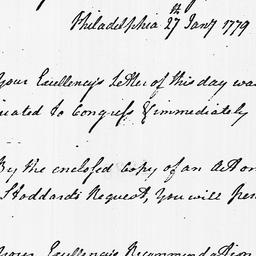 Philadelphia 27th Jany 1779
Your Excellency's Letter of this day was
to Congress & immediately
By the enclosed Copy of an Act
Stoddard's Request, You will
Your Excellency's Recommendation